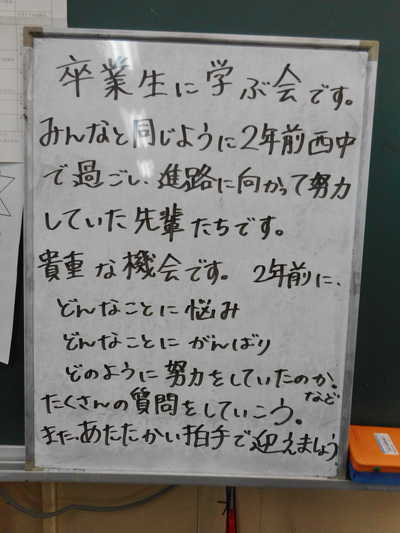 卒業生に学ぶ会です。
みんなと同じように2年前西中
で過ごし、進路に向かって努力
していた先輩たちです。
貴重な機会です。 2年前に、
どんなことに悩み
どんなことにがんばり
どのように努力をしていたのか。
など
たくさんの質問をしていこう。
また、あたたかい拍手で迎えましょう